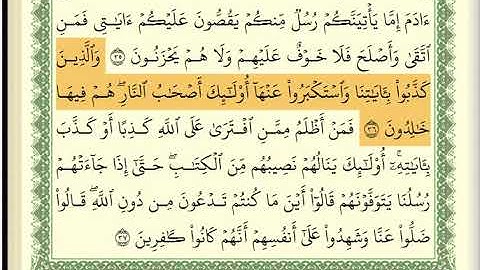 ءَادَمَ إِمَّا يَأۡتِيَنَّكُمۡ رُسُلٞ مِّنكُمۡ يَقُصُّونَ عَلَيۡكُمۡ ءَايَٰتِي فَمَنِ
ٱتَّقَىٰ وَأَصۡلَحَ فَلَا خَوۡفٌ عَلَيۡهِمۡ وَلَا هُمۡ يَحۡزَنُونَ ٣٥ وَٱلَّذِينَ
كَذَّبُواْ بِـَٔايَٰتِنَا وَٱسۡتَكۡبَرُواْ عَنۡهَآ أُوْلَٰٓئِكَ أَصۡحَٰبُ ٱلنَّارِۖ هُمۡ فِيهَا
خَٰلِدُونَ ٣٦ فَمَنۡ أَظۡلَمُ مِمَّنِ ٱفۡتَرَىٰ عَلَى ٱللَّهِ كَذِبًا أَوۡ كَذَّبَ
بِـَٔايَٰتِهِۦٓۚ أُوْلَٰٓئِكَ يَنَالُهُمۡ نَصِيبُهُم مِّنَ ٱلۡكِتَٰبِۖ حَتَّىٰٓ إِذَا جَآءَتۡهُمۡ
رُسُلُنَا يَتَوَفَّوۡنَهُمۡ قَالُوٓاْ أَيۡنَ مَا كُنتُمۡ تَدۡعُونَ مِن دُونِ ٱللَّهِۖ قَالُواْ
ضَلُّواْ عَنَّا وَشَهِدُواْ عَلَىٰٓ أَنفُسِهِمۡ أَنَّهُمۡ كَانُواْ كَٰفِرِينَ ٣٧